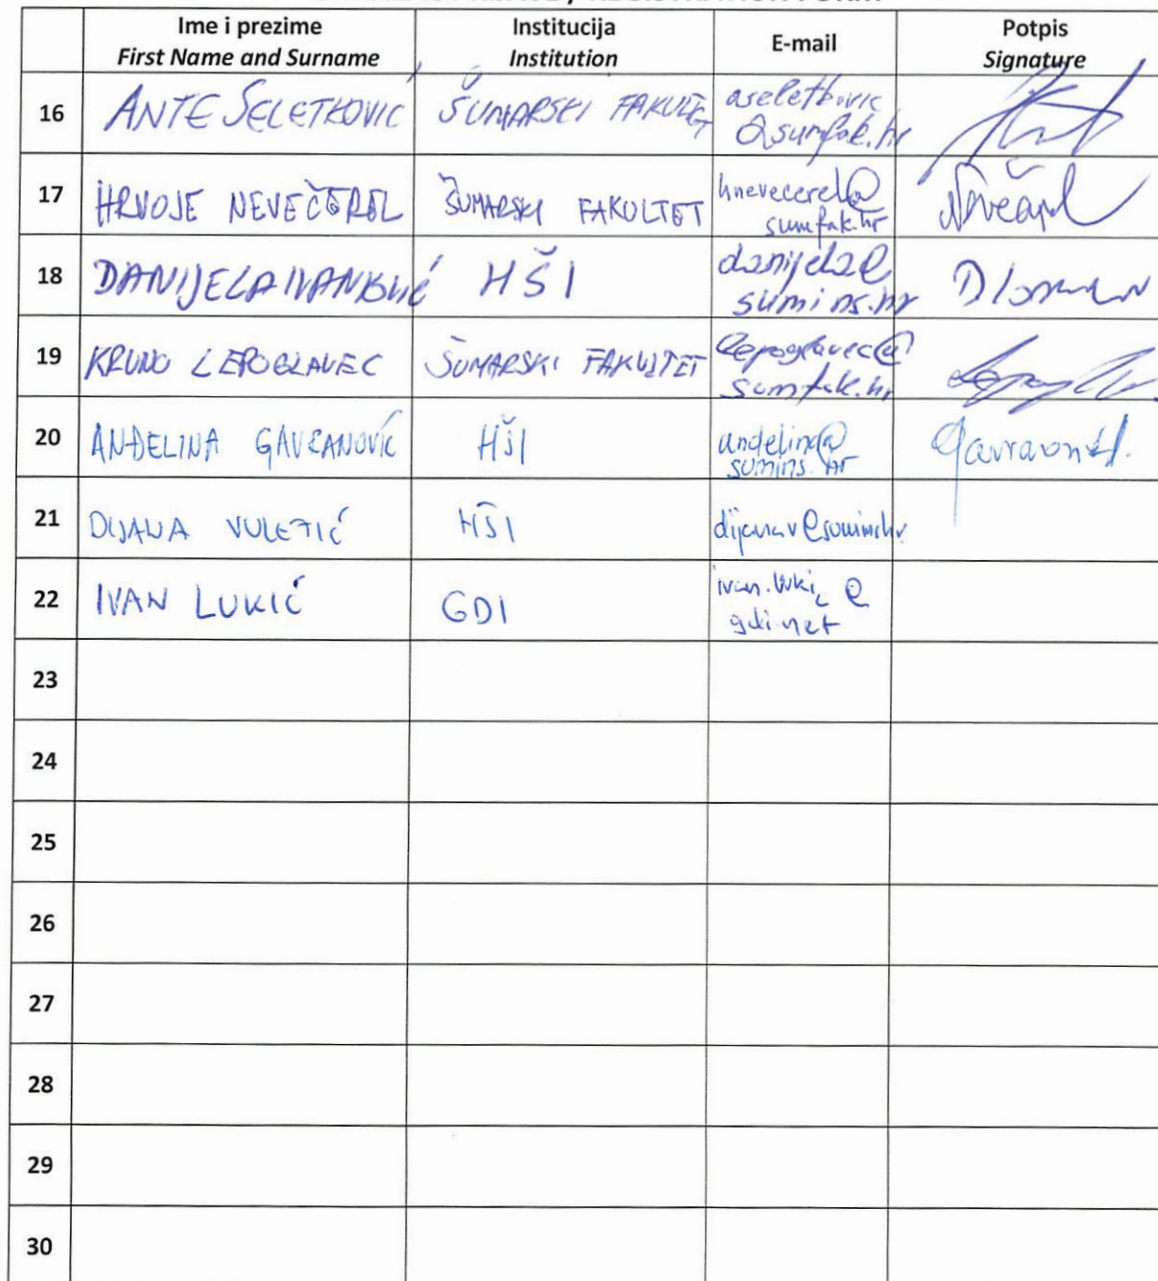 Ime i prezime Institucija E-mail Potpis
First Name and Surname Institution Signature
16 ANTE SELETKOVIĆ ŠUMARSKI FAKULTET aseletkovic
@sumfak.hr
17 HRVOJE NEVEČEREL ŠUMARSKI FAKULTET hnevecerel@
sumfak.hr
18 DANIJELA IVANKOVIĆ HŠI danijela@
sumins.hr
19 KRUNO LEPOGLAVEC ŠUMARSKI FAKULTET lepoglavec@
sumfak.hr
20 ANĐELINA GAVRANOVIĆ HŠI andelina@
sumins.hr
21 DIJANA VULETIĆ HŠI dijanav@sumins.hr
22 IVAN LUKIĆ GDI ivan.lukic@
gdi.net
23
24
25
26
27
28
29
30